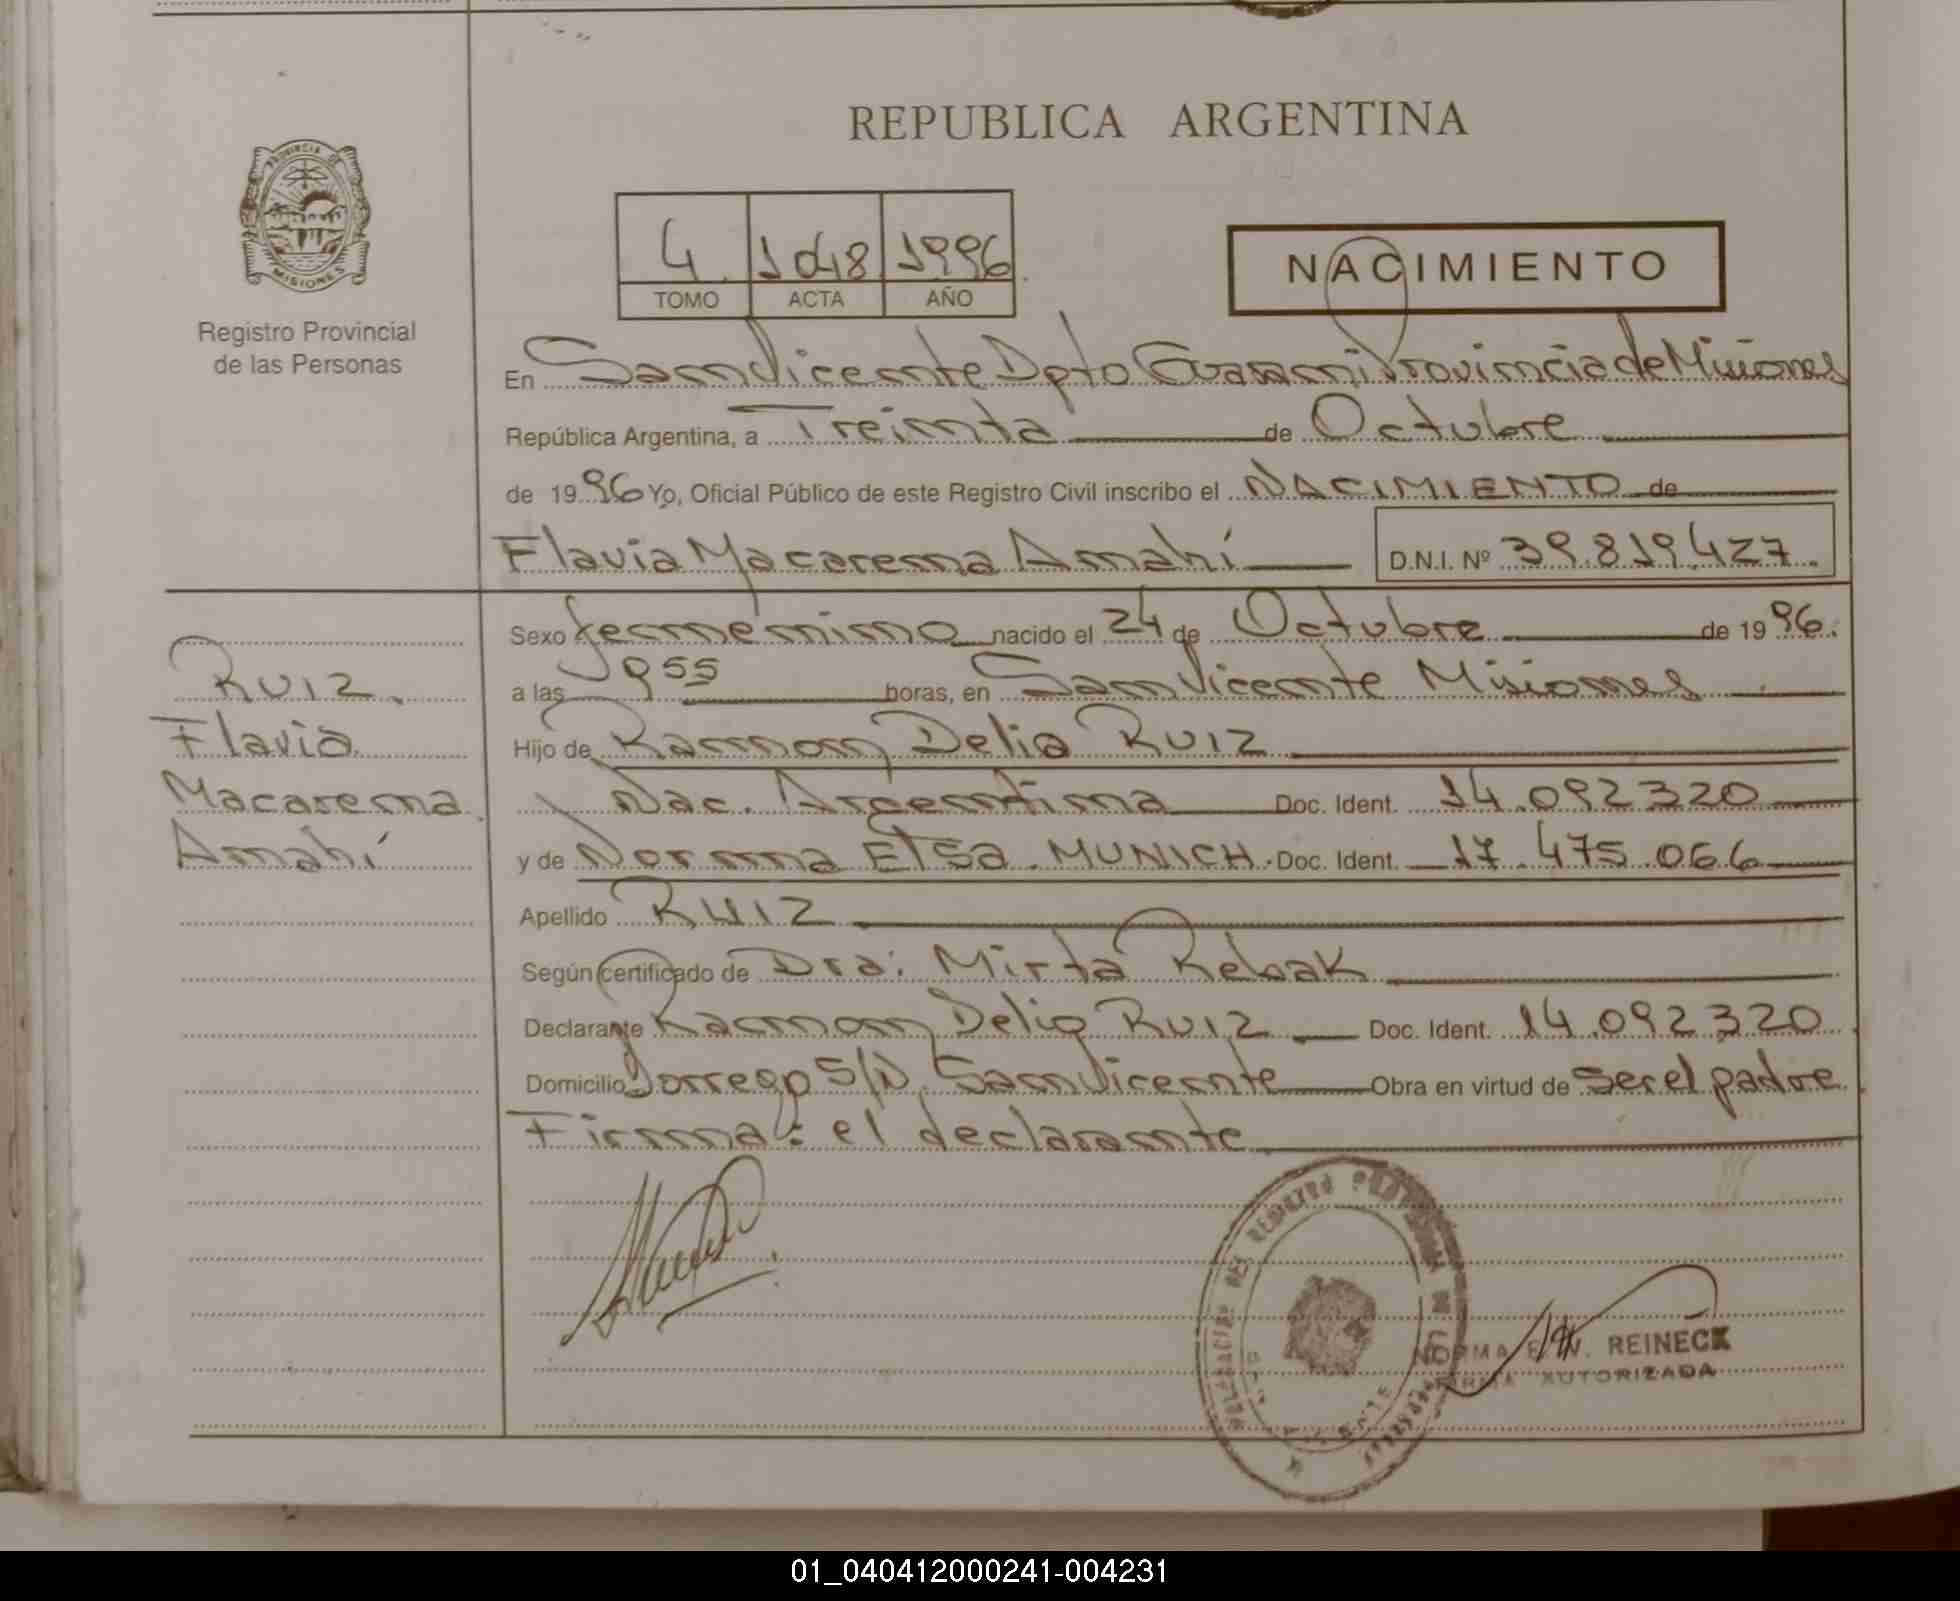 REPUBLICA ARGENTINA
PROVINCIA DE
MISIONES
Registro Provincial
de las Personas
4 1048 1996
TOMO ACTA AÑO
NACIMIENTO
En San Vicente Dpto Guarani Provincia de Misiones
República Argentina, a Treinta de Octubre
de 1996 Yo, Oficial Público de este Registro Civil inscribo el NACIMIENTO de
Flavia Macarena Anahí D.N.I. Nº 39.819.427.
Sexo femenino nacido el 24 de Octubre de 1996.
a las 955 horas, en San Vicente Misiones
Hijo de Ramon Delio Ruiz
Nac. Argentina Doc. Ident. 14.092320
y de Norma Elsa MUNICH. Doc. Ident. 17.475.066
Apellido RUIZ
Según certificado de Dra: Mirta Rebak
Declarante Ramon Delio Ruiz Doc. Ident. 14.092320
Domicilio Dorrego S/N. San Vicente Obra en virtud de ser el padre
Firma: el declarante
Ruiz.
Flavia
Macarena
Anahí
DELEGACION DEL REGISTRO PROVINCIAL DE LAS PERSONAS
NORMA E. W. REINECK
FIRMA AUTORIZADA
01_040412000241-004231